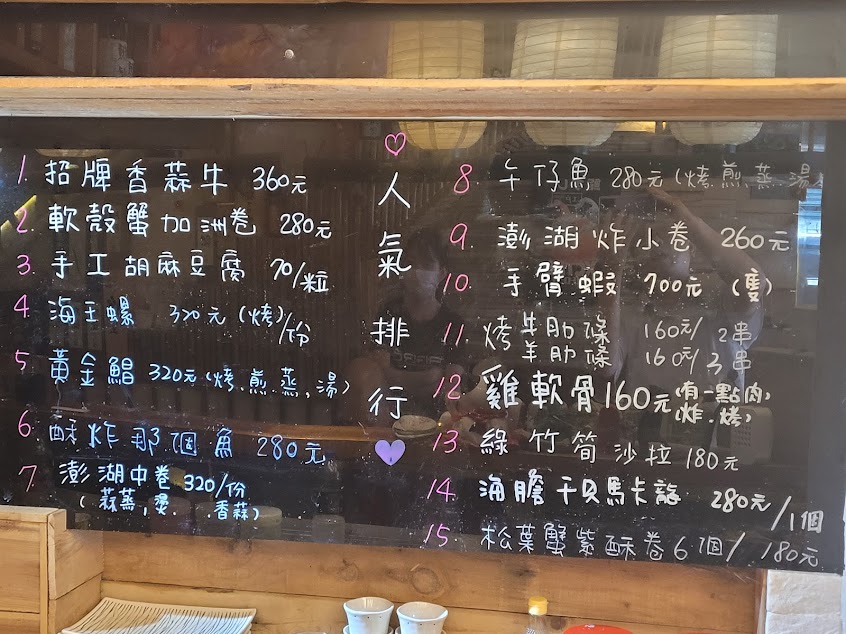 人氣排行
1. 招牌香蒜牛 360元
2. 軟殼蟹加洲卷 280元
3. 手工胡麻豆腐 70/粒
4. 海王螺 320元(烤)/份
5. 黃金鯧 320元(烤.煎.蒸,湯)
6. 酥炸那個魚 280元
7. 澎湖中卷 320/份
(蒜蒸,燙. .香蒜)
8. 午仔魚 280元(烤.煎.蒸.湯
9. 澎湖炸小卷 260元
10. 手臂蝦 700元 (隻)
11. 烤牛肋條 160元/2串
羊肋條 160元/3串
12. 雞軟骨160元(有一點肉,
炸.烤)
13. 綠竹筍沙拉 180元
14. 海膽干貝馬卡龍 280元/1個
15. 松葉蟹紫酥卷6個/180元